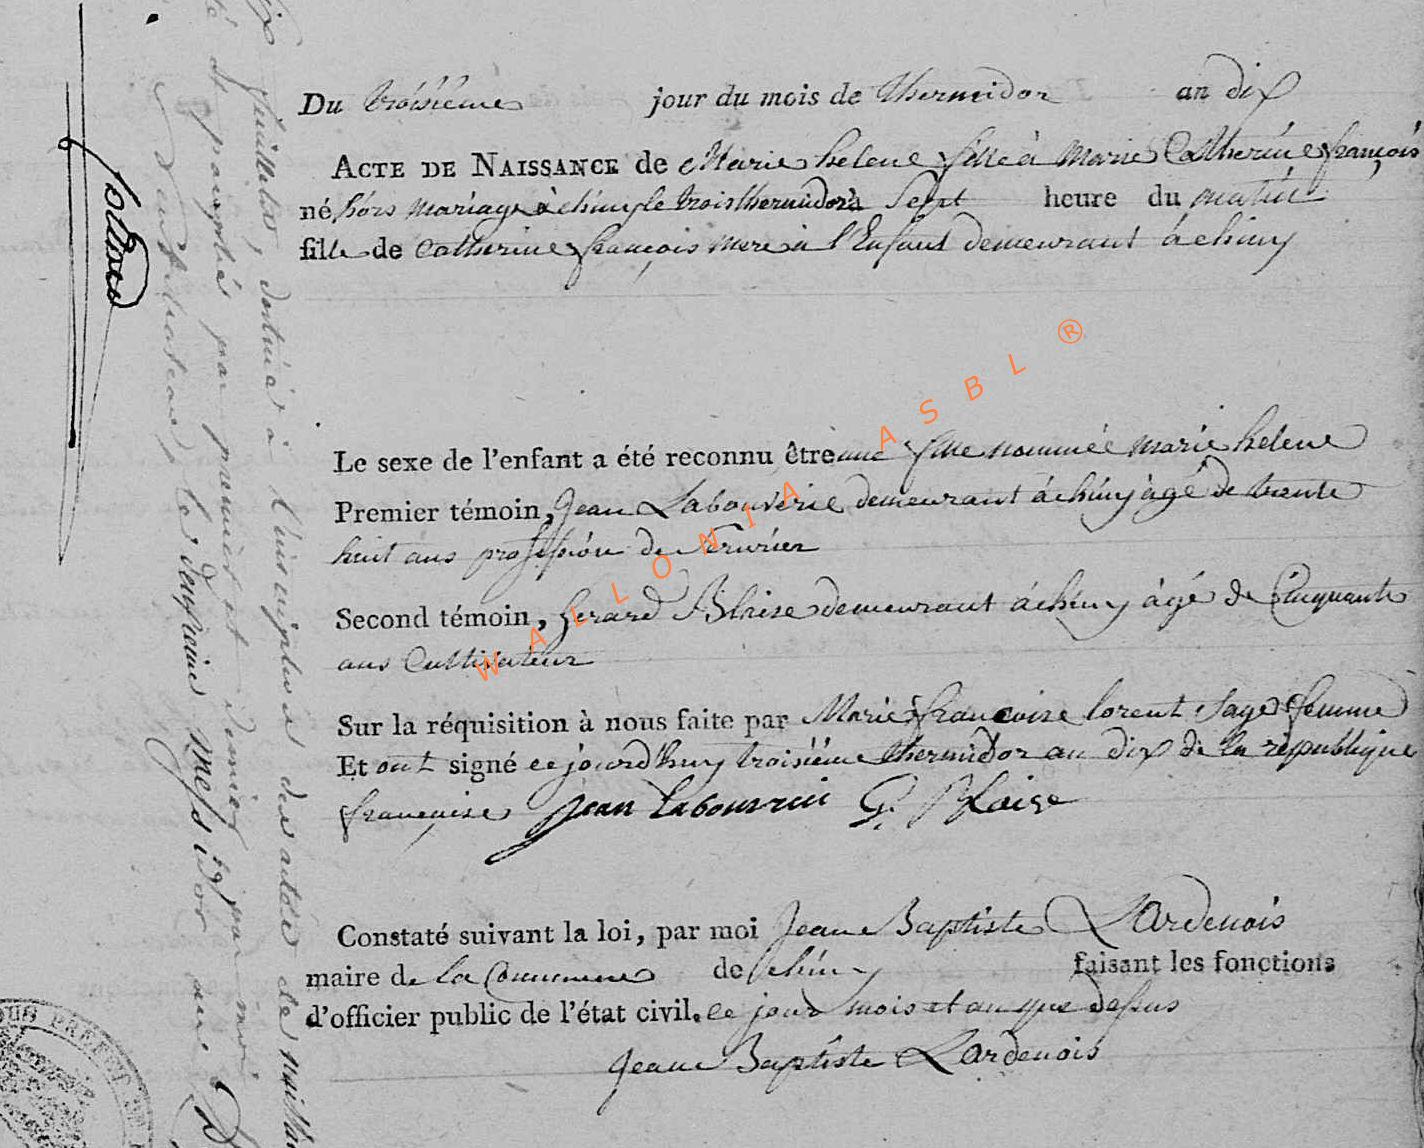 Du troisiéme jour du mois de thermidor an dix
ACTE DE NAISSANCE de Marie helene fille à Marie Catherine françois
né hors mariage à chiny le trois thermidor à Sept heure du matin
fille de Catherine françois mere à l'Enfant demeurant à chiny
Le sexe de l'enfant a été reconnu être une fille nommée marie helene
Premier témoin, Jean Labouverie demeurant à chiny àgé de trente
huit ans profession de
Second témoin, Gerard Blaise demeurant à chiny àgé de Cinquante
ans Cultivateur
Sur la réquisition à nous faite par Marie françoise lorent Sage femme
Et ont signé ce jourd'huy troisiéme thermidor an dix de la république
française Jean Labouverie G. Blaise
Constaté suivant la loi, par moi Jean Baptiste Lardenois
maire de la Commune de chiny faisant les fonctions
d'officier public de l'état civil. ce jour mois et an que dessus
Jean Baptiste Lardenois
feuillets, destinés à l'inscription des actes de naissan
par premier et dernier par moi
Neufchateau, le douzieme Messidor an
WALLONIA ASBL ®